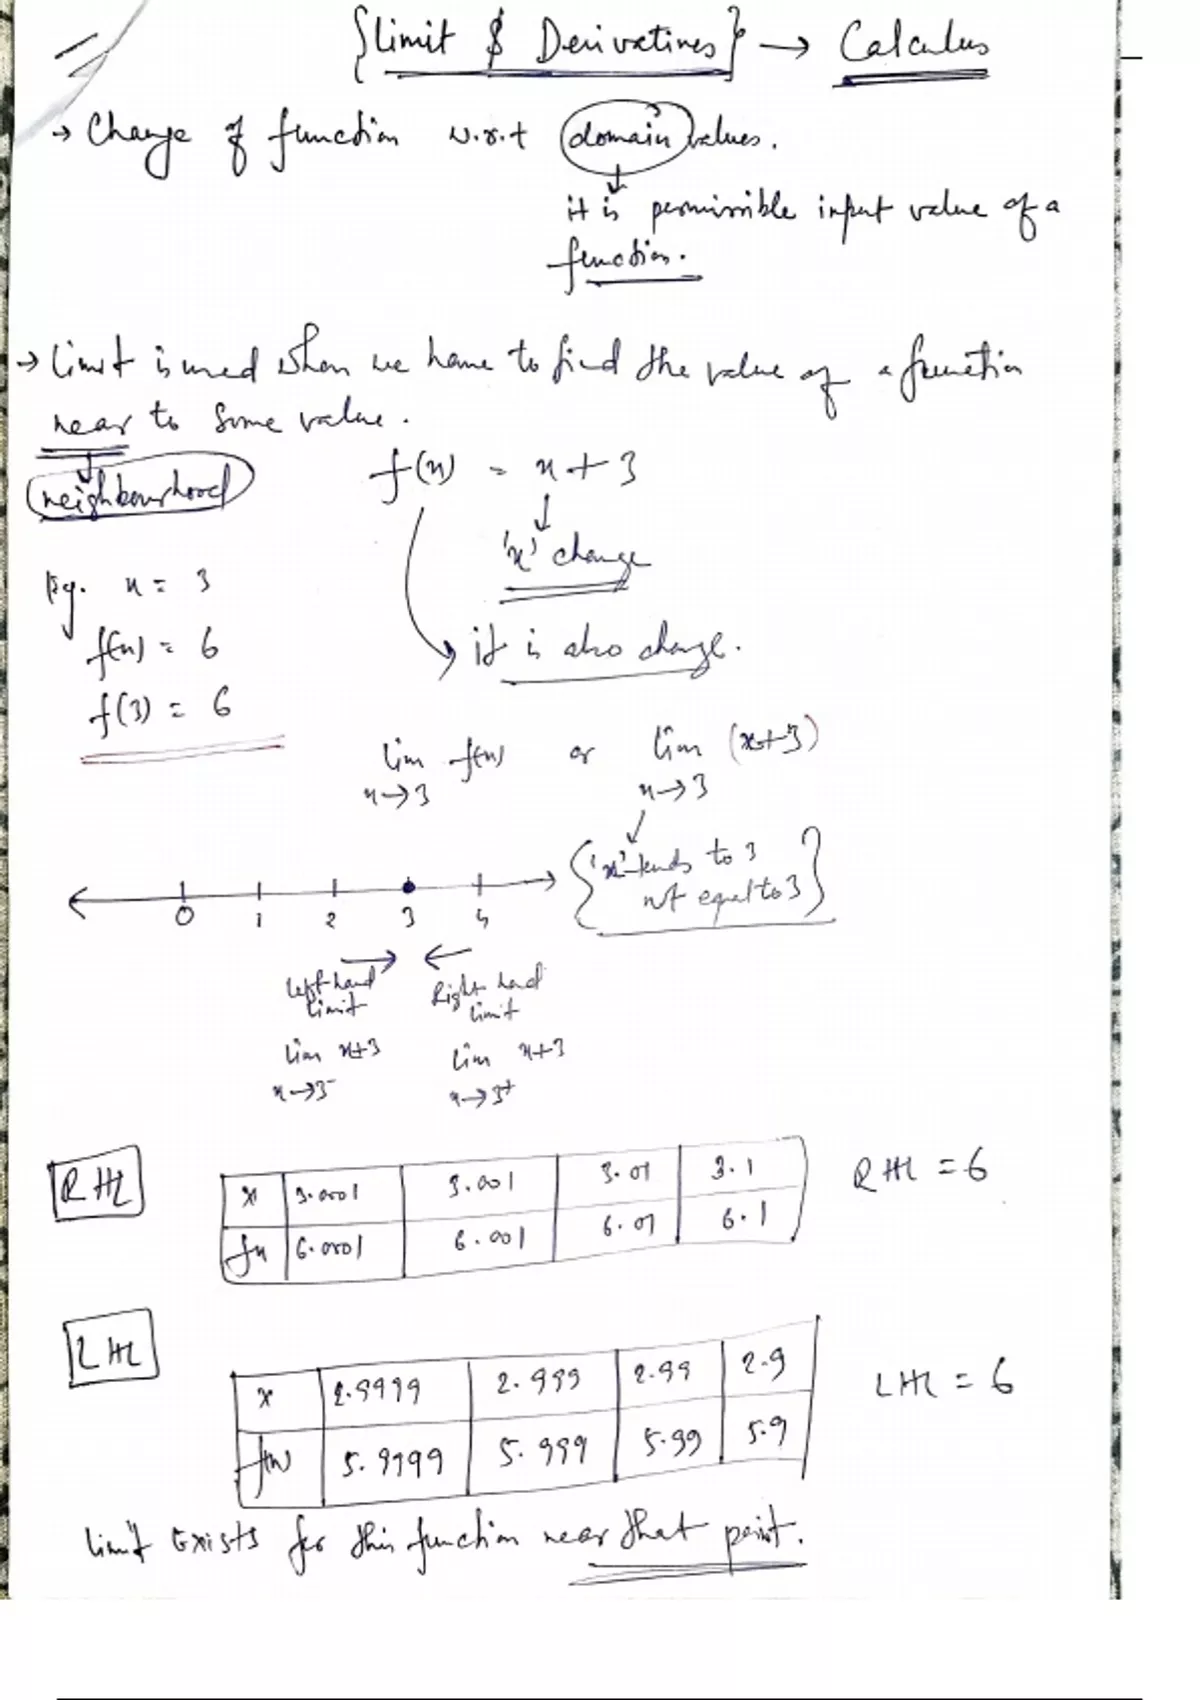 {Limit & Derivatives} → Calculus
→ Change of function w.r.t domain values.
it is permissible input value of a
function.
→ Limit is used when we have to find the value of a function
near to some value.
neighbourhood
f(x) = x + 3
'x' change
it is also change.
Eg. x = 3
f(x) = 6
f(3) = 6
lim f(x) or lim (x+3)
x→3 x→3
{'x' tends to 3
not equal to 3}
0 1 2 3 4
Left hand Right hand
limit limit
lim x+3 lim x+3
x→3⁻ x→3⁺
RHL
x 3.0001 3.001 3.01 3.1 RHL = 6
fx 6.0001 6.001 6.01 6.1
LHL
x 2.9999 2.999 2.99 2.9 LHL = 6
f(x) 5.9999 5.999 5.99 5.9
limit Exists for this function near that point.